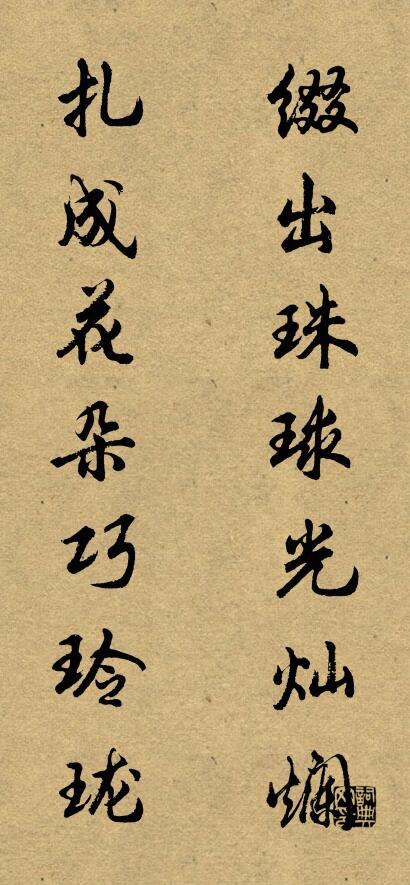 缀出珠球光灿烂
扎成花朵巧玲珑